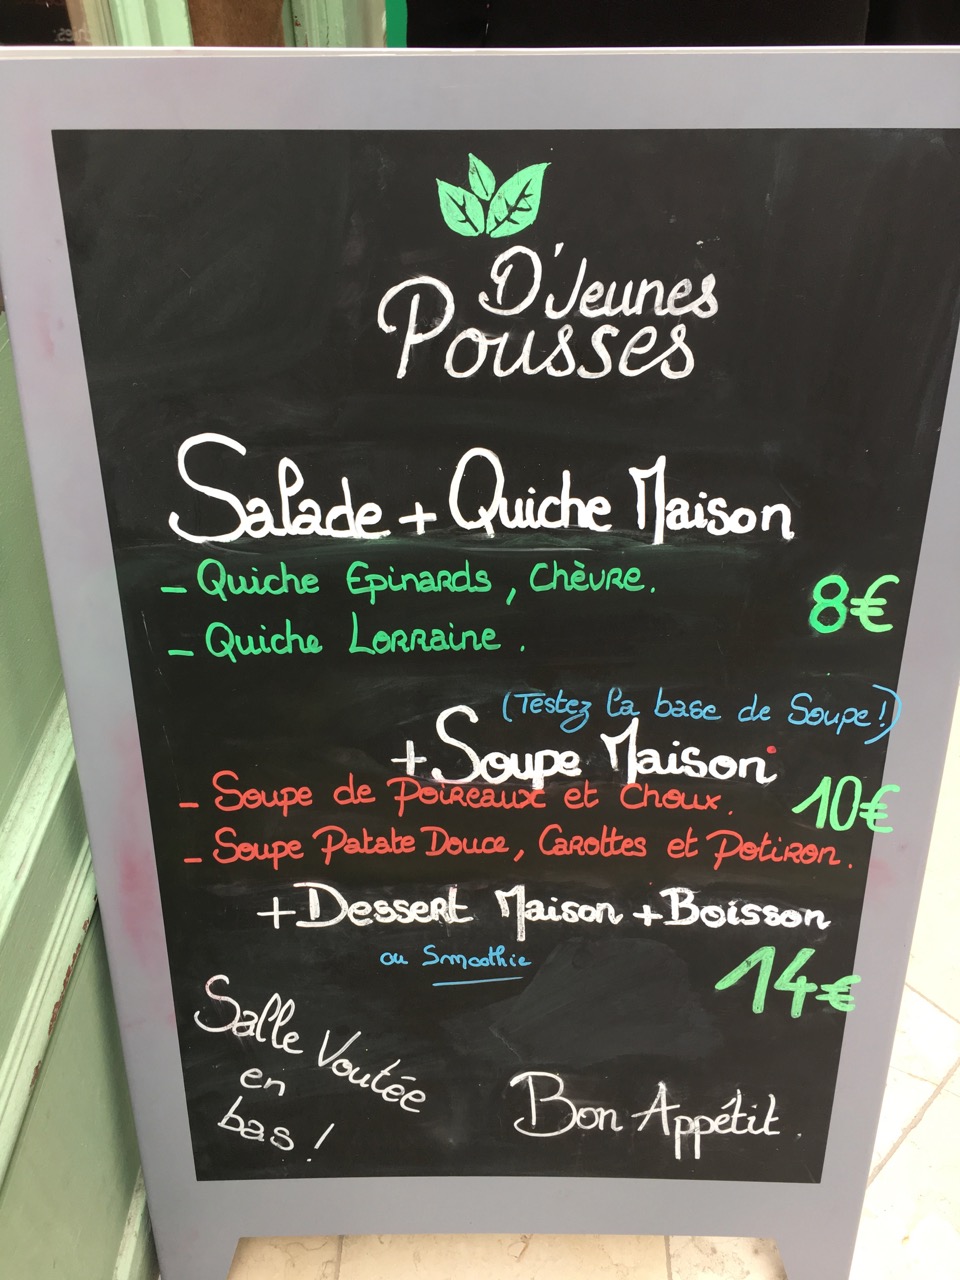 D'Jeunes
Pousses
Salade + Quiche Maison
- Quiche Epinards, Chèvre.
8€
- Quiche Lorraine.
(Testez la base de Soupe!)
+ Soupe Maison
- Soupe de Poireaux et Choux.
10€
- Soupe Patate Douce, Carottes et Potiron.
+ Dessert Maison + Boisson
ou Smoothie
14€
Salle Voutée
en
bas !
Bon Appétit.